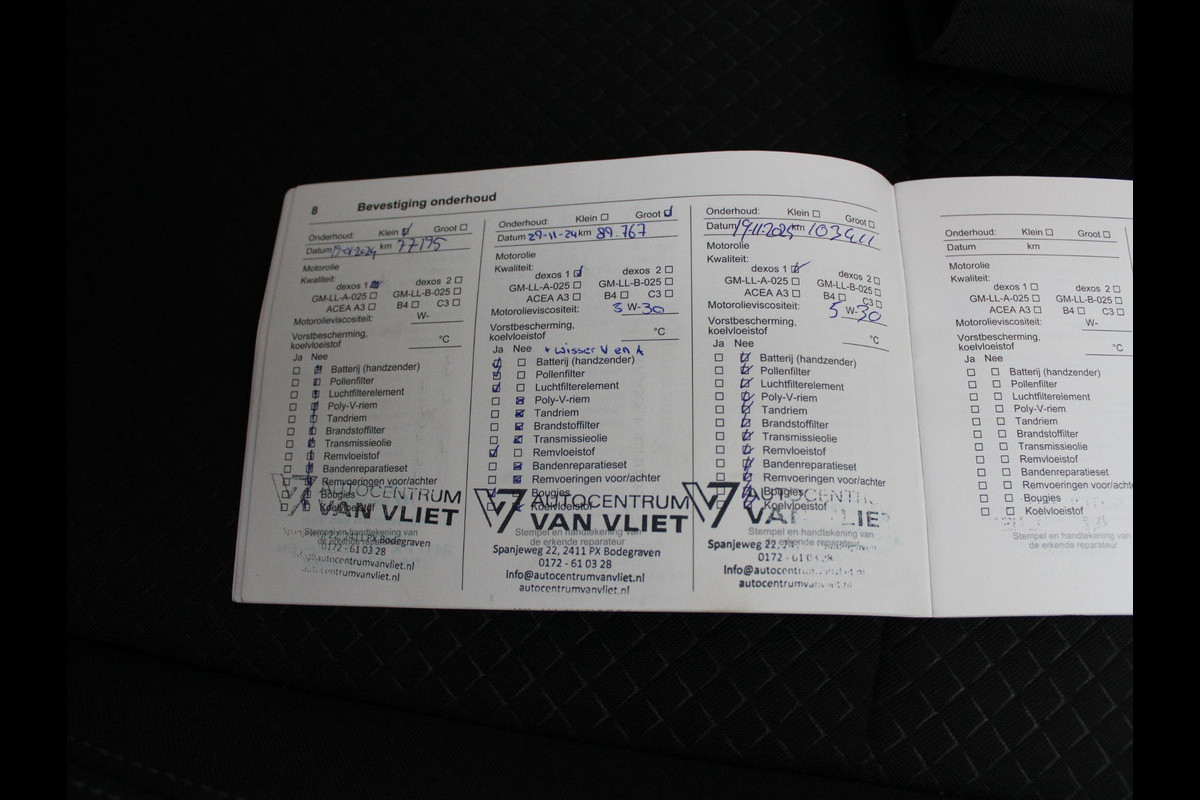 8 Bevestiging onderhoud
Onderhoud: Klein Groot
Datum km 77195
Motorolie
Kwaliteit:
dexos 1 dexos 2
GM-LL-A-025 GM-LL-B-025
ACEA A3 B4 C3
Motorolieviscositeit: W-
Vorstbescherming,
koelvloeistof °C
Ja Nee
Batterij (handzender)
Pollenfilter
Luchtfilterelement
Poly-V-riem
Tandriem
Brandstoffilter
Transmissieolie
Remvloeistof
Bandenreparatieset
Remvoeringen voor/achter
Bougies
Koelvloeistof
AUTOCENTRUM
VAN VLIET
Stempel en handtekening van
de erkende reparateur
2411 PX Bodegraven
0172 - 61 03 28
autocentrumvanvliet.nl
Onderhoud: Klein Groot
Datum 29-11-24 km 89.767
Motorolie
Kwaliteit:
dexos 1 dexos 2
GM-LL-A-025 GM-LL-B-025
ACEA A3 B4 C3
Motorolieviscositeit: 5 W-30
Vorstbescherming,
koelvloeistof °C
Ja Nee + wisser V en A
Batterij (handzender)
Pollenfilter
Luchtfilterelement
Poly-V-riem
Tandriem
Brandstoffilter
Transmissieolie
Remvloeistof
Bandenreparatieset
Remvoeringen voor/achter
Bougies
Koelvloeistof
AUTOCENTRUM
VAN VLIET
Stempel en handtekening van
de erkende reparateur
Spanjeweg 22, 2411 PX Bodegraven
0172 - 61 03 28
Info@autocentrumvanvliet.nl
autocentrumvanvliet.nl
Onderhoud: Klein Groot
Datum 19-11-2025 km 103411
Motorolie
Kwaliteit:
dexos 1 dexos 2
GM-LL-A-025 GM-LL-B-025
ACEA A3 B4 C3
Motorolieviscositeit: 5 W-30
Vorstbescherming,
koelvloeistof °C
Ja Nee
Batterij (handzender)
Pollenfilter
Luchtfilterelement
Poly-V-riem
Tandriem
Brandstoffilter
Transmissieolie
Remvloeistof
Bandenreparatieset
Remvoeringen voor/achter
Bougies
Koelvloeistof
Stempel en handtekening van
de erkende reparateur
Spanjeweg 22,
0172 - 61 03 28
Onderhoud: Klein Groot
Datum km
Motorolie
Kwaliteit:
dexos 1 dexos 2
GM-LL-A-025 GM-LL-B-025
ACEA A3 B4 C3
Motorolieviscositeit: W-
Vorstbescherming,
koelvloeistof °C
Ja Nee
Batterij (handzender)
Pollenfilter
Luchtfilterelement
Poly-V-riem
Tandriem
Brandstoffilter
Transmissieolie
Remvloeistof
Bandenreparatieset
Remvoeringen voor/acht
Bougies
Koelvloeistof
Stempel en handtekening van
de erkende reparateur